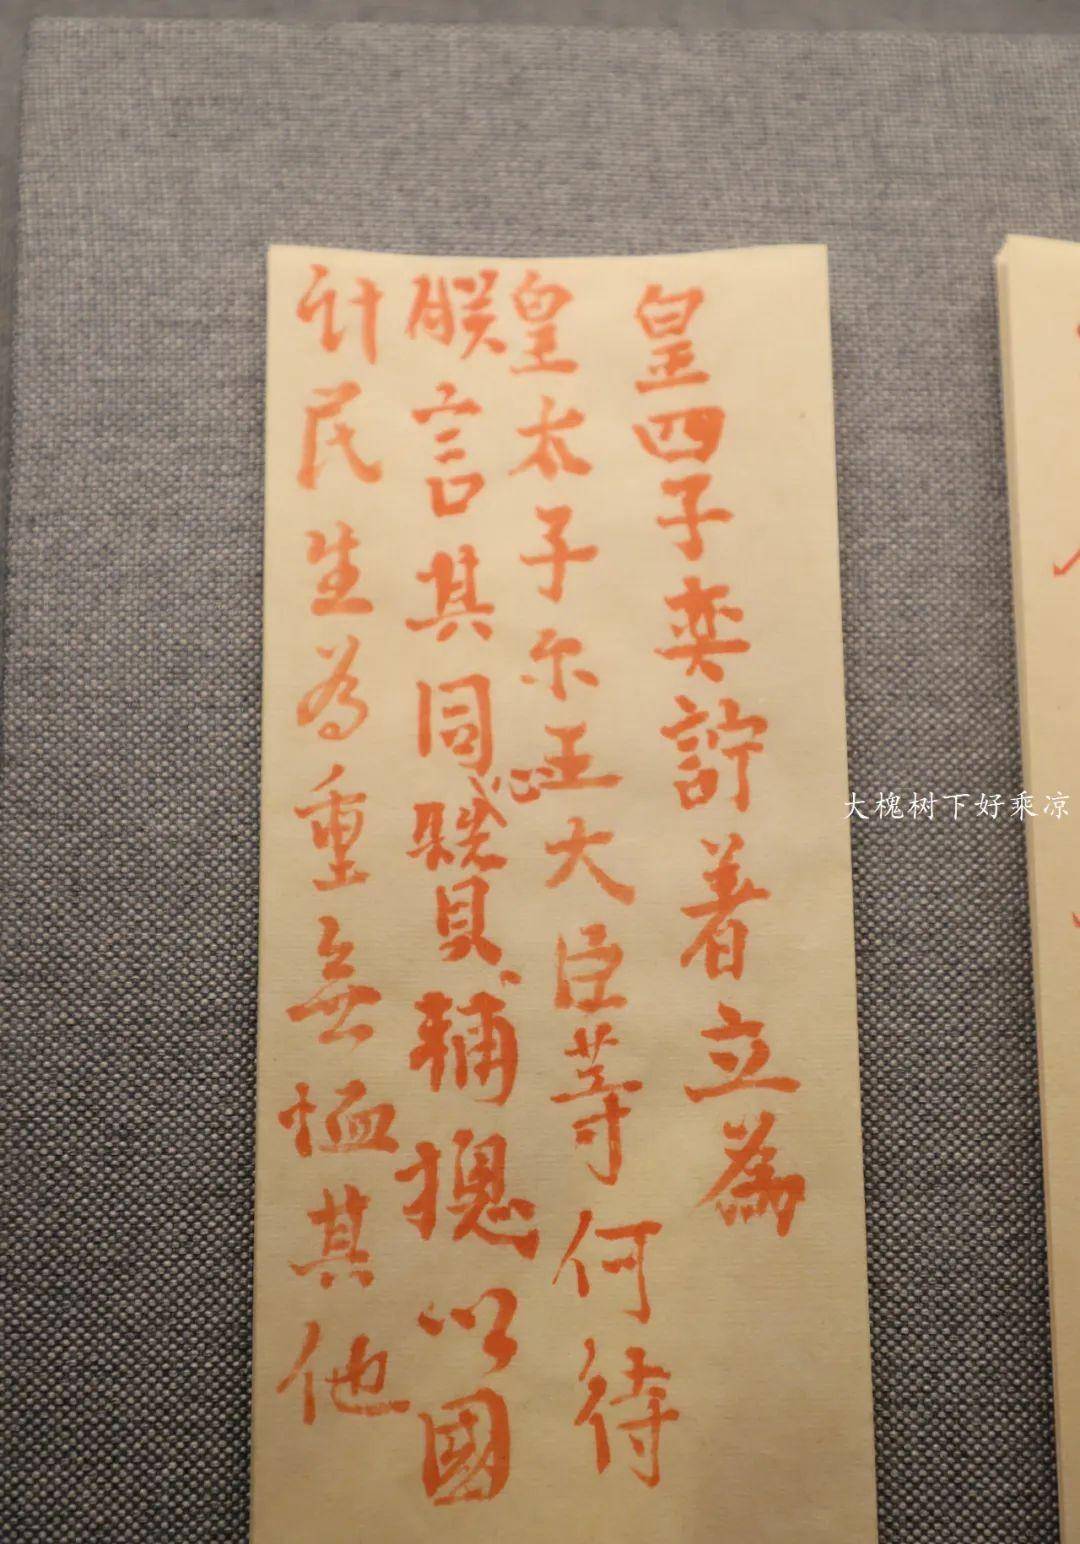 皇四子奕詝着立為
皇太子尔王大臣等何待
朕言其同心贊輔摠以國
計民生為重無恤其他
大槐树下好乘凉